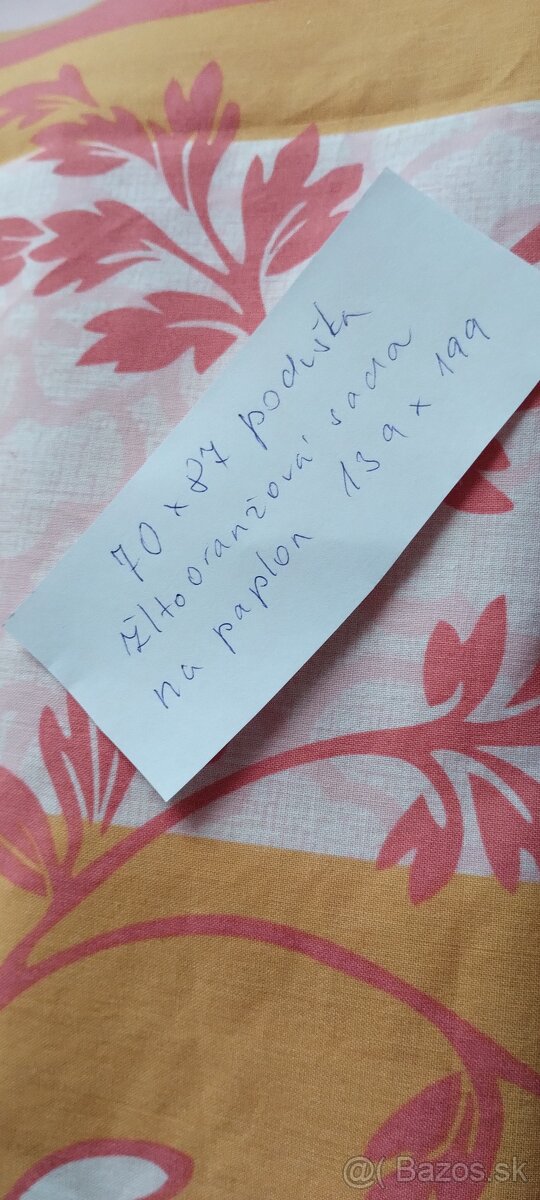 70 x 87 poduška
žltooranžová sada
na paplon 139 x 199
@( Bazos.sk